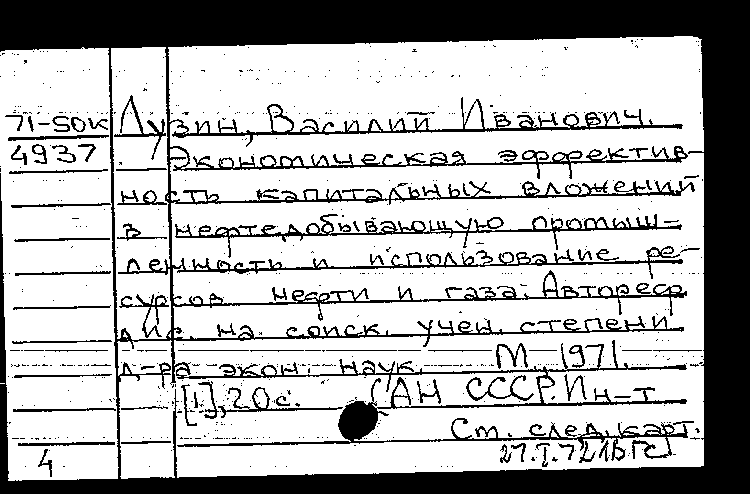 71-50к Лузин, Василий Иванович.
4937 Экономическая эффектив-
ность капитальных вложений
в нефтедобывающую промыш-
ленность и использование ре-
сурсов нефти и газа. Автореф.
дис. на соиск. учен. степени
д-ра экон. наук. М., 1971.
[1], 20с. (АН СССР. Ин-т
Ст. след. карт.
4 27.I.72